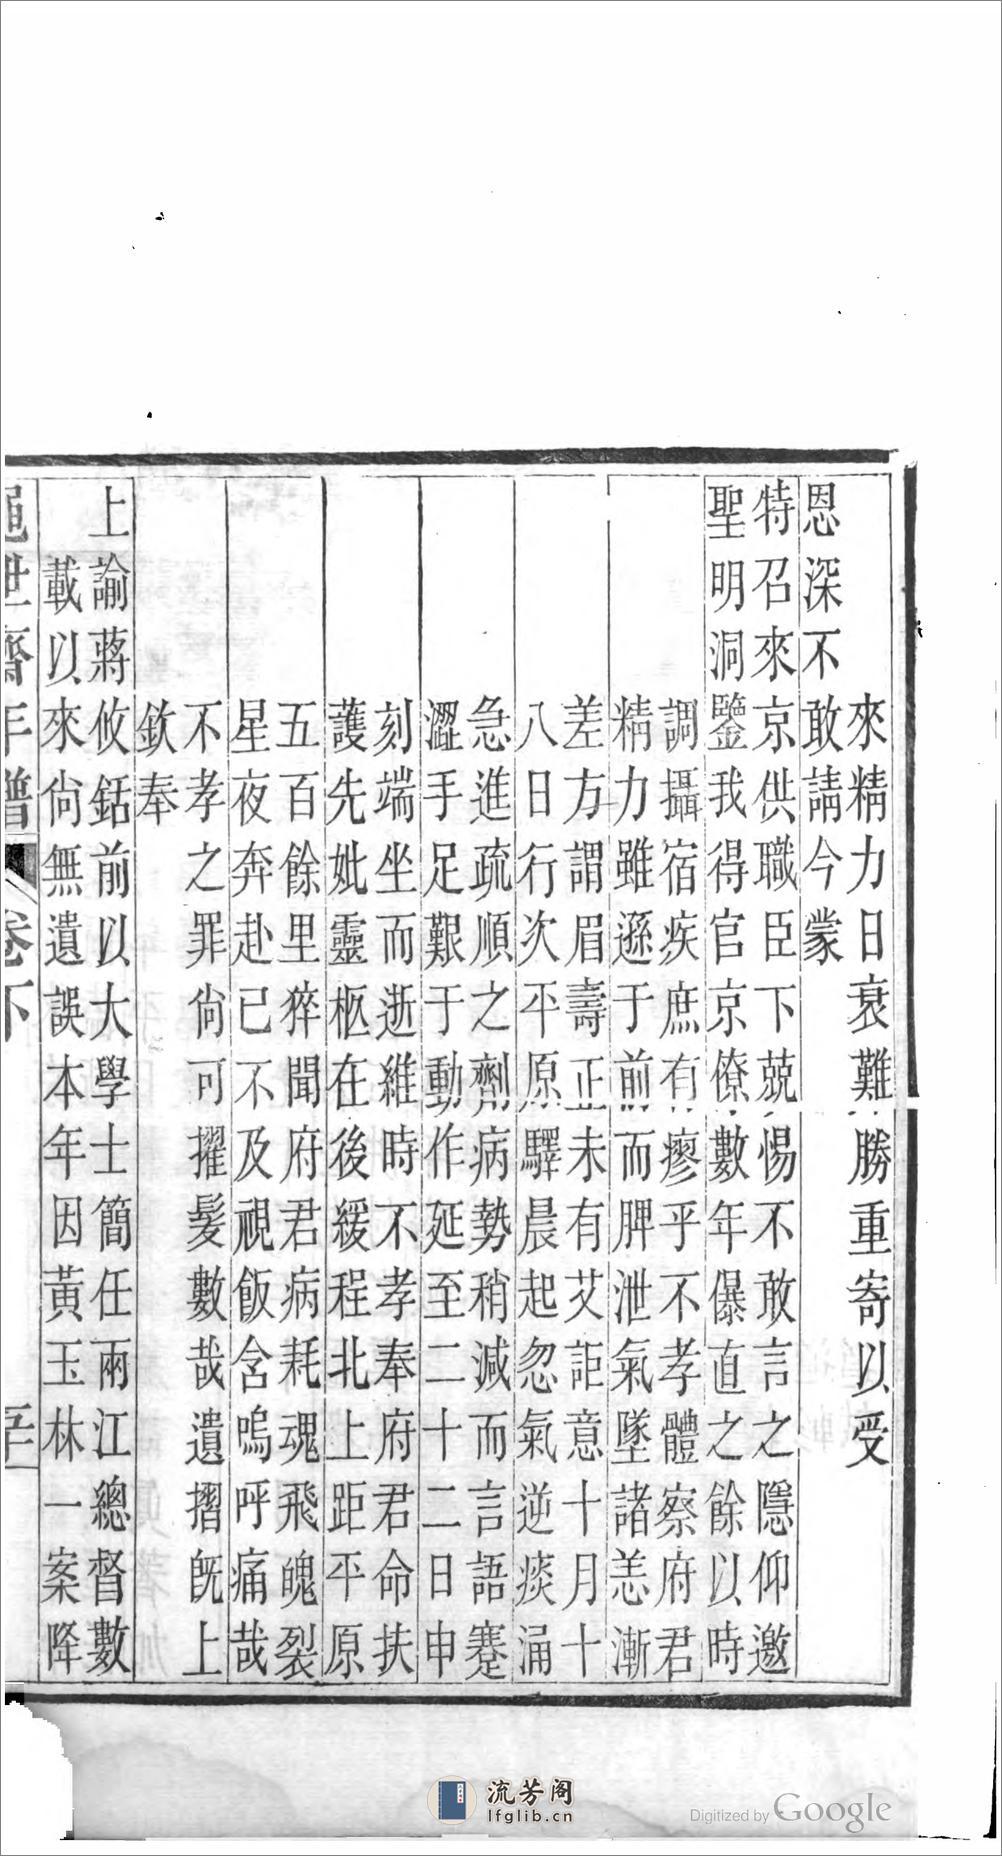 來精力日衰難勝重寄以受
恩深不敢請今蒙
特召來京供職臣下兢惕不敢言之隱仰邀
聖明洞鑒我得官京僚數年儤直之餘以時
調攝宿疾庶有瘳乎不孝體察府君
精力雖遜于前而脾泄氣墜諸恙漸
差方謂眉壽正未有艾詎意十月十
八日行次平原驛晨起忽氣逆痰涌
急進疏順之劑病勢稍減而言語蹇
澀手足艱于動作延至二十二日申
刻端坐而逝維時不孝奉府君命扶
護先妣靈柩在後緩程北上距平原
五百餘里猝聞府君病耗魂飛魄裂
星夜奔赴已不及視飯含嗚呼痛哉
不孝之罪尙可擢髮數哉遺摺旣上
欽奉
上諭蔣攸銛前以大學士簡任兩江總督數
載以來尙無遺誤本年因黃玉林一案降
繩世齋年譜 卷下
流芳阁
lfglib.cn
Digitized by Google